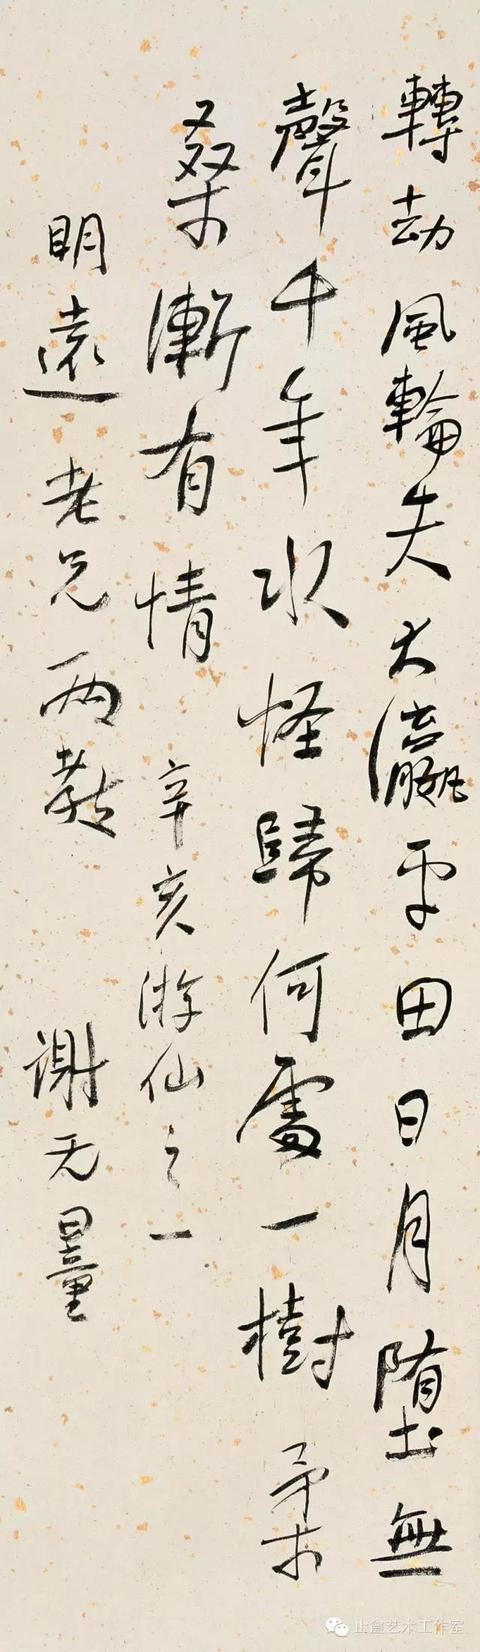 轉劫風輪失大瀛平田日月墮無
聲千年水怪歸何處一樹柔
桑漸有情 辛亥游仙之一
明遠老兄两教 謝无量
艺术工作室